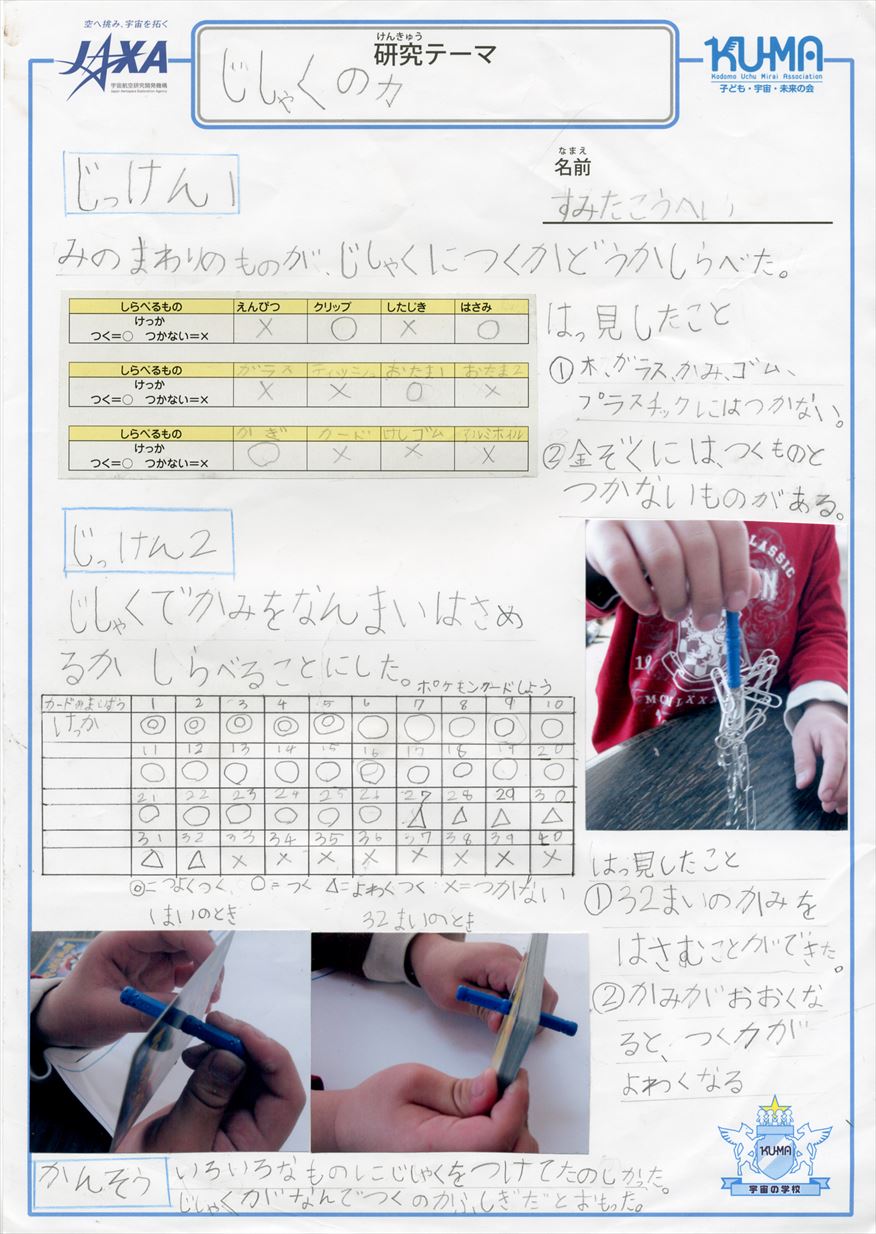 空へ挑み、宇宙を拓く
JAXA
宇宙航空研究開発機構
Japan Aerospace Exploration Agency
けんきゅう
研究テーマ
じしゃくの力
KU-MA
Kodomo Uchu Mirai Association
子ども・宇宙・未来の会
じっけん1
なまえ
名前
すみたこうへい
みのまわりのものが、じしゃくにつくかどうかしらべた。
しらべるもの えんぴつ クリップ したじき はさみ
けっか
つく=○ つかない=× × ○ × ○
しらべるもの ガラス ティッシュ おたま1 おたま2
けっか
つく=○ つかない=× × × ○ ×
しらべるもの かぎ カード けしゴム アルミホイル
けっか
つく=○ つかない=× ○ × × ×
はっ見したこと
①木、ガラス、かみ、ゴム、
プラスチックにはつかない。
②金ぞくには、つくものと
つかないものがある。
じっけん2
じしゃくでかみをなんまいはさめ
るか しらべることにした。
ポケモンカードしよう
カードのまいすう 1 2 3 4 5 6 7 8 9 10
けっか ◎ ◎ ◎ ◎ ◎ ○ ○ ○ ○ ○
11 12 13 14 15 16 17 18 19 20
○ ○ ○ ○ ○ ○ ○ ○ ○ ○
21 22 23 24 25 26 27 28 29 30
○ ○ ○ ○ ○ ○ △ △ △ △
31 32 33 34 35 36 37 38 39 40
△ △ × × × × × × × ×
◎=つよくつく、○=つく △=よわくつく ×=つかない
1まいのとき
32まいのとき
CLASSIC
はっ見したこと
①32まいのかみを
はさむことができた。
②かみがおおくな
ると、つく力が
よわくなる
かんそう
いろいろなものにじしゃくをつけてたのしかった。
じしゃくがなんでつくのかふしぎだとおもった。
KU-MA
宇宙の学校